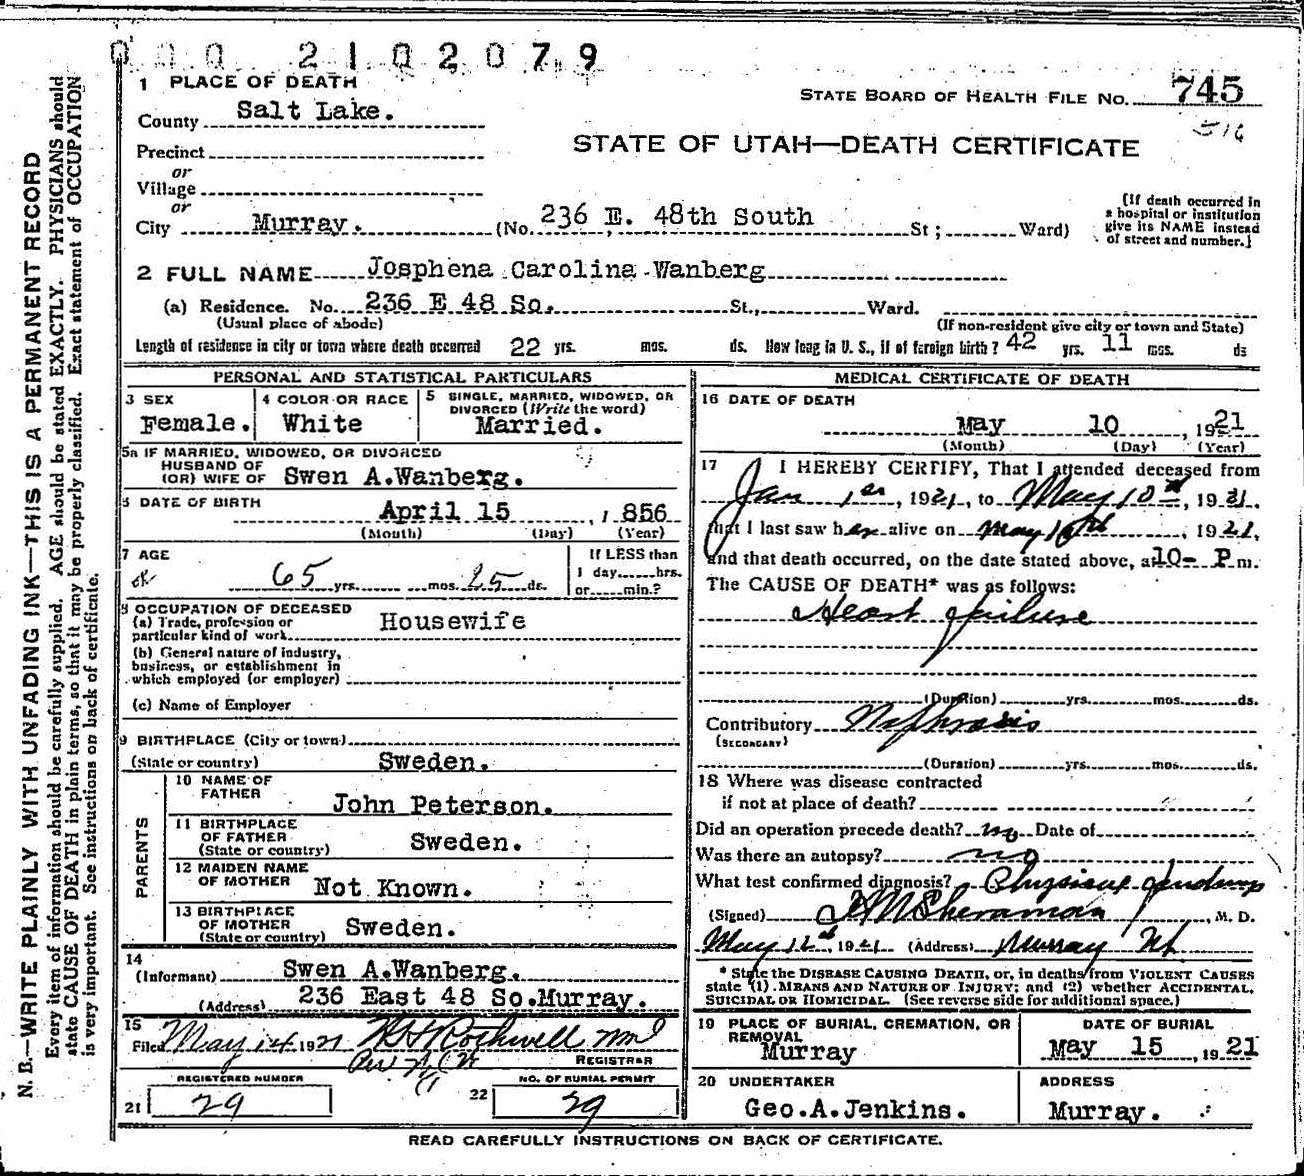 0002102079
1 PLACE OF DEATH
STATE BOARD OF HEALTH FILE NO. 745
516
County Salt Lake.
STATE OF UTAH—DEATH CERTIFICATE
Precinct
or
Village
or
City Murray. (No. 236 E. 48th South St; Ward)
[If death occurred in
a hospital or institution
give its NAME instead
of street and number.]
2 FULL NAME Josphena Carolina Wanberg
(a) Residence. No. 236 E 48 So. St., Ward.
(Usual place of abode) (If non-resident give city or town and State)
Length of residence in city or town where death occurred 22 yrs. mos. ds. How long in U. S., if of foreign birth? 42 yrs. 11 mos. ds
PERSONAL AND STATISTICAL PARTICULARS
3 SEX
Female.
4 COLOR OR RACE
White
5 SINGLE, MARRIED, WIDOWED, OR
DIVORCED (Write the word)
Married.
5a IF MARRIED, WIDOWED, OR DIVORCED
HUSBAND OF
(OR) WIFE OF Swen A.Wanberg.
6 DATE OF BIRTH
April 15, 1856
(Month) (Day) (Year)
7 AGE
65 yrs. mos. 25 ds.
If LESS than
1 day......hrs.
or......min.?
8 OCCUPATION OF DECEASED
(a) Trade, profession or
particular kind of work Housewife
(b) General nature of industry,
business, or establishment in
which employed (or employer)
(c) Name of Employer
9 BIRTHPLACE (City or town)
(State or country) Sweden.
PARENTS
10 NAME OF
FATHER
John Peterson.
11 BIRTHPLACE
OF FATHER
(State or country) Sweden.
12 MAIDEN NAME
OF MOTHER Not Known.
13 BIRTHPLACE
OF MOTHER
(State or country) Sweden.
14
(Informant) Swen A.Wanberg.
(Address) 236 East 48 So.Murray.
15
Filed May 14 1921 Rockwell MD
REGISTRAR
Per
REGISTERED NUMBER
21 29
NO. OF BURIAL PERMIT
22 29
MEDICAL CERTIFICATE OF DEATH
16 DATE OF DEATH
May 10, 1921
(Month) (Day) (Year)
17 I HEREBY CERTIFY, That I attended deceased from
Jan 1st, 1921, to May 10th, 1921.
that I last saw her alive on May 10th, 1921,
and that death occurred, on the date stated above, at 10- P m.
The CAUSE OF DEATH* was as follows:
Heart failure
(Duration) yrs. mos. ds.
Contributory
(SECONDARY)
(Duration) yrs. mos. ds.
18 Where was disease contracted
if not at place of death?
Did an operation precede death? no Date of
Was there an autopsy? no
What test confirmed diagnosis? Physical
(Signed), M. D.
May 12th, 1921 (Address) Murray Ut.
* State the DISEASE CAUSING DEATH, or, in deaths from VIOLENT CAUSES
state (1) MEANS AND NATURE OF INJURY; and (2) whether ACCIDENTAL,
SUICIDAL OR HOMICIDAL. (See reverse side for additional space.)
19 PLACE OF BURIAL, CREMATION, OR
REMOVAL
Murray
DATE OF BURIAL
May 15, 1921
20 UNDERTAKER
Geo.A.Jenkins.
ADDRESS
Murray.
READ CAREFULLY INSTRUCTIONS ON BACK OF CERTIFICATE.
N. B.—WRITE PLAINLY WITH UNFADING INK—THIS IS A PERMANENT RECORD
Every item of information should be carefully supplied. AGE should be stated EXACTLY. PHYSICIANS should
state CAUSE OF DEATH in plain terms, so that it may be properly classified. Exact statement of OCCUPATION
is very important. See instructions on back of certificate.